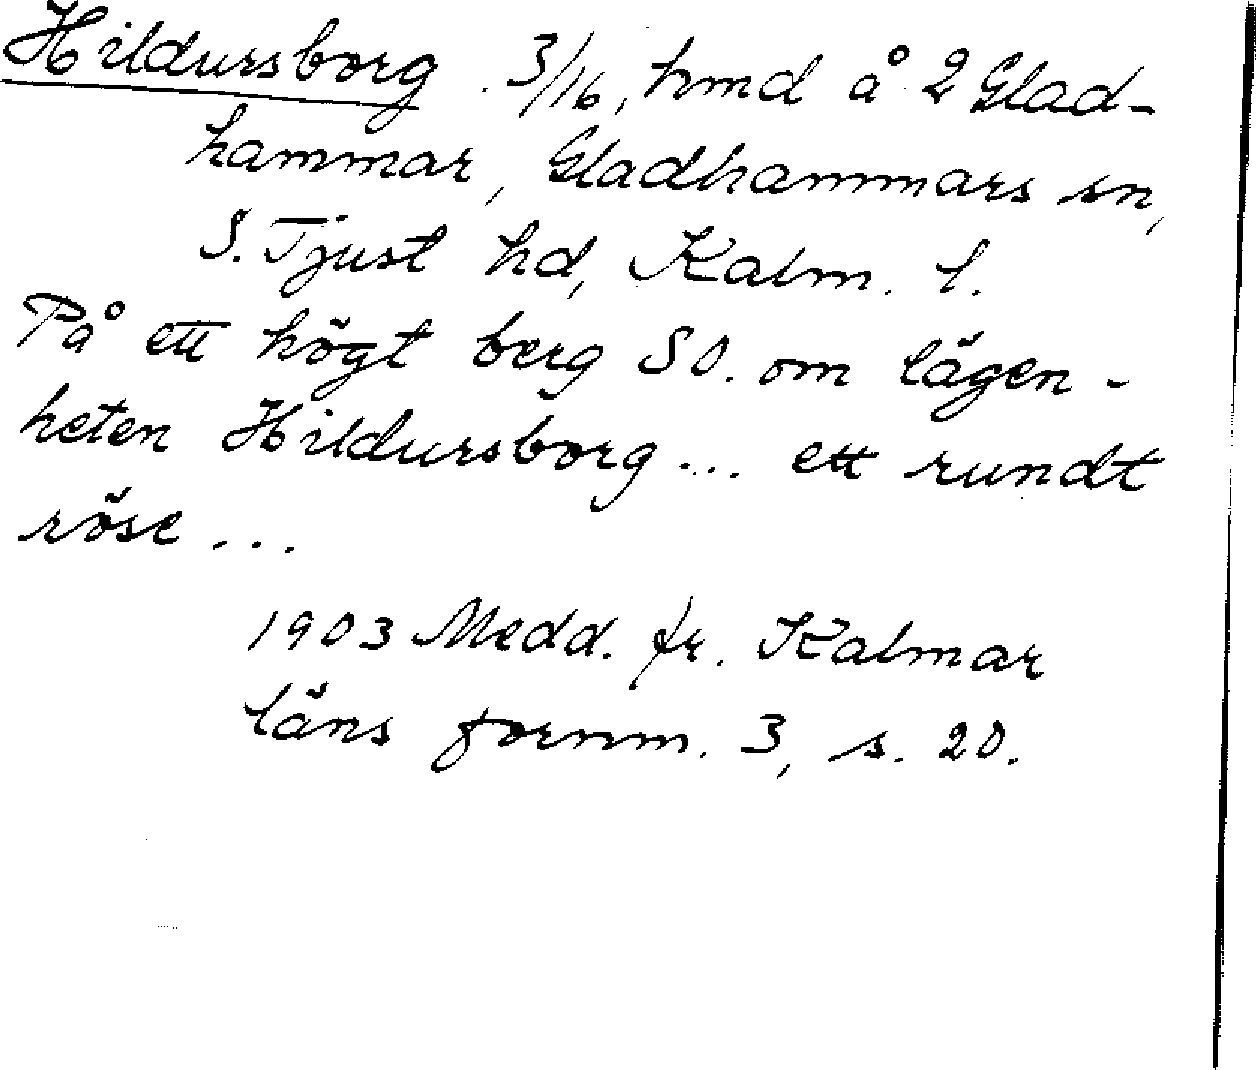 Hildursborg. 3/16, hmd å 2 Glad-
hammar, Gladhammars sn,
S. Tjust hd, Kalm. l.
På ett högt berg SO. om lägen-
heten Hildursborg... ett rundt
röse...
1903 Medd. fr. Kalmar
läns fornm. 3, s. 20.